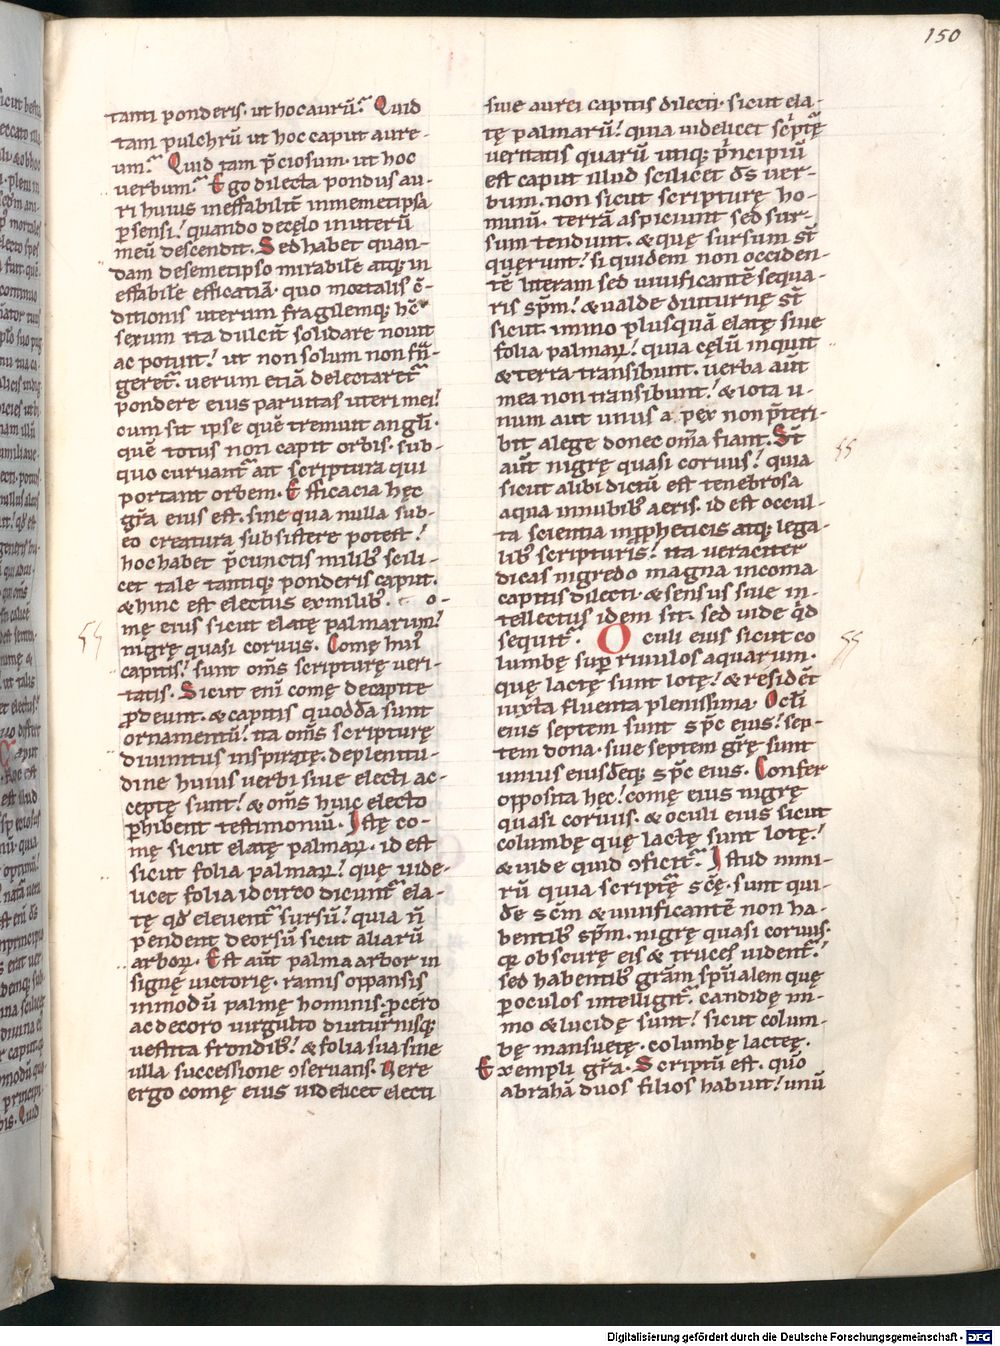 150
tanti ponderis. ut hoc aurũ? Quid
tam pulchrũ ut hoc caput aure-
um? Quid tam p̃ciosum. ut hoc
uerbum? Ego dilecta pondus au-
ri huius ineffabilit̃ in memetipsa
ꝑsensi! quando de cęlo in uterũ
meũ descendit. Sed habet quan-
dam de semetipso mirabile atq; in
effabile efficatiã. quo mortalis c̃-
ditionis uterum fragilemq; hc̃
sexum ita dulcit̃ solidare nouit
ac potuit! ut non solum non frñ-
geret̃. uerum etiã delectaret̃
pondere eius paruitas uteri mei!
cum sit ipse quẽ tremunt angl̃i.
quẽ totus non capit orbis. sub-
quo curuant̃ ait scriptura qui
portant orbem. Efficacia hęc
gr̃a eius est. sine qua nulla sub-
eo creatura subsistere potest!
hoc habet p̃ cunctis milib; scili-
cet tale tantiq; ponderis caput.
& hinc est electus ex milib;. Co-
mę eius sicut elatę palmarum!
nigrę quasi coruus. Comę hui'
capitis! sunt om̃s scripturę ueri-
tatis. Sicut eni comę de capite
ꝓdeunt. & capitis quoddã sunt
ornamentũ! ita om̃s scripturę
diuinitus inspiratę. de plenitu-
dine huius uerbi siue electi ac-
ceptę sunt! & om̃s huic electo
ꝑhibent testimoniũ. Istę co-
mę sicut elatę palmaꝝ. id est
sicut folia palmaꝝ! quę uide-
licet folia idcirco dicunt̃ ela-
tę qd̃ eleuent̃ sursũ! quia ñ
pendent deorsũ sicut aliarũ
arboꝝ. Est aut̃ palma arbor in
signę uictorię. ramis oppansis
in modũ palmę hominis. ꝓcero
ac decoro uirgulto diuturnisq;
uestita frondib;! & folia sua sine
ulla successione ꝯseruans. Uere
ergo comę eius uidelicet electi
siue aurei capitis dilecti. sicut ela-
tę palmarũ! quia uidelicet sc̃ptę
ueritatis quarũ utiq; p̃ncipiũ
est caput illud scilicet d̃s uer-
bum. non sicut scripturę ho-
minũ. terrã aspiciunt sed sur-
sum tendunt. & quę sursum st̃
quęrunt! si quidem non occiden-
tẽ literam sed uiuificantẽ sequa-
ris sp̃m! & ualde diuturnę st̃
sicut immo plusquã elatę siue
folia palmaꝝ! quia cęlũ inquit
& terra transibunt. uerba aut̃
mea non transibunt! & iota u-
num aut unus apex non p̃teri-
bit a lege donec om̃a fiant. St̃
aut̃ nigrę quasi coruus! quia
sicut alibi dictũ est tenebrosa
aqua in nubib; aeris. id est occul-
ta scientia in ꝓpheticis atq; lega-
lib; scripturis! ita ueraciter
dicas nigredo magna in coma
capitis dilecti. & sensus siue in-
tellectus idem sit. sed uide qd̃
sequit̃. Oculi eius sicut co
lumbę sup̃ riuulos aquarum.
quę lactę sunt lotę! & resident̃
iuxta fluenta plenissima. Oc̃li
eius septem sunt sp̃c eius! sep-
tem dona. siue septem gr̃ę sunt
unius eiusdẽq; sp̃c eius. Confer
opposita hęc! comę eius nigrę
quasi coruus. & oculi eius sicut
columbę quę lactę sunt lotę!
& uide quid ꝯficit̃. Istud nimi-
rũ quia scriptę sc̃ę. sunt qui-
dẽ sc̃m & uiuificantẽ non ha-
bentib; sp̃m. nigrę quasi coruus.
q; obscurę eis & truces uident̃!
sed habentib; gr̃am sp̃ualem quę
ꝑ oculos intelligit̃. candidę im-
mo & lucidę sunt! sicut colum-
bę mansuetę. columbę lacteę.
Exempli gr̃a. Scriptũ est. quõ
abrahã duos filios habuit! unũ
Digitalisierung gefördert durch die Deutsche Forschungsgemeinschaft - DFG